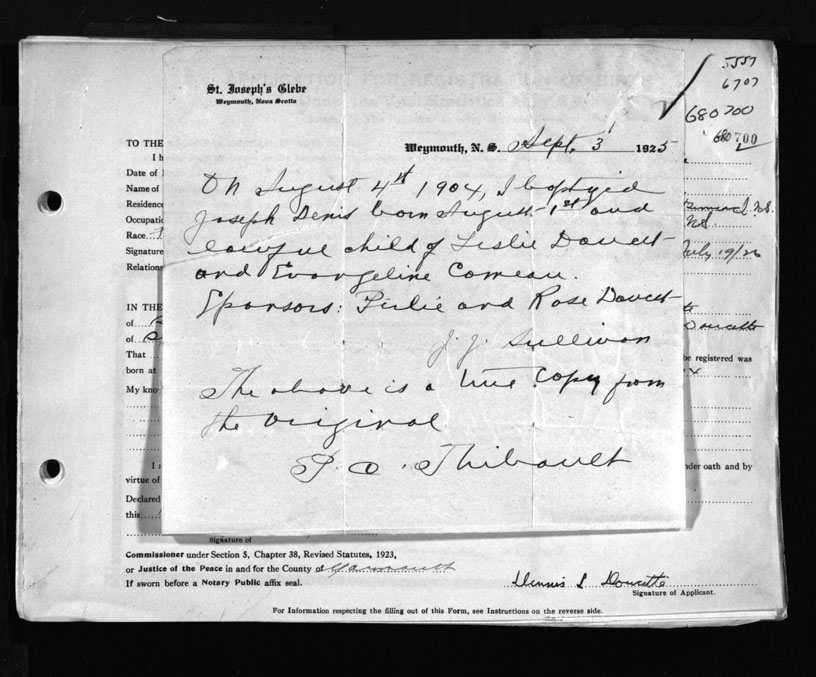 5557
6707
680700
680700
St. Joseph's Glebe
Weymouth, Nova Scotia
Weymouth, N. S. Sept. 3 1925
On August 4st 1904, I baptized
Joseph Denis born August 1st and
lawful child of Leslie Doucet
and Evangeline Comeau.
Sponsors: Leslie and Rose Doucet
J. J. Sullivan
The above is a true copy from
the original
P. O. Thibault
TO THE
I h
Date of
Name of
Residence
N.S.
Occupatio
N.S.
Race
Signature
July 19/26
Relations
IN THE
of
Doucette
of
That
be registered was
born at
My kno
I
nder oath and by
virtue of
Declared
this
Signature of
Commissioner under Section 5, Chapter 38, Revised Statutes, 1923,
or Justice of the Peace in and for the County of Yarmouth
If sworn before a Notary Public affix seal.
Dennis L Doucette
Signature of Applicant.
For Information respecting the filling out of this Form, see Instructions on the reverse side.